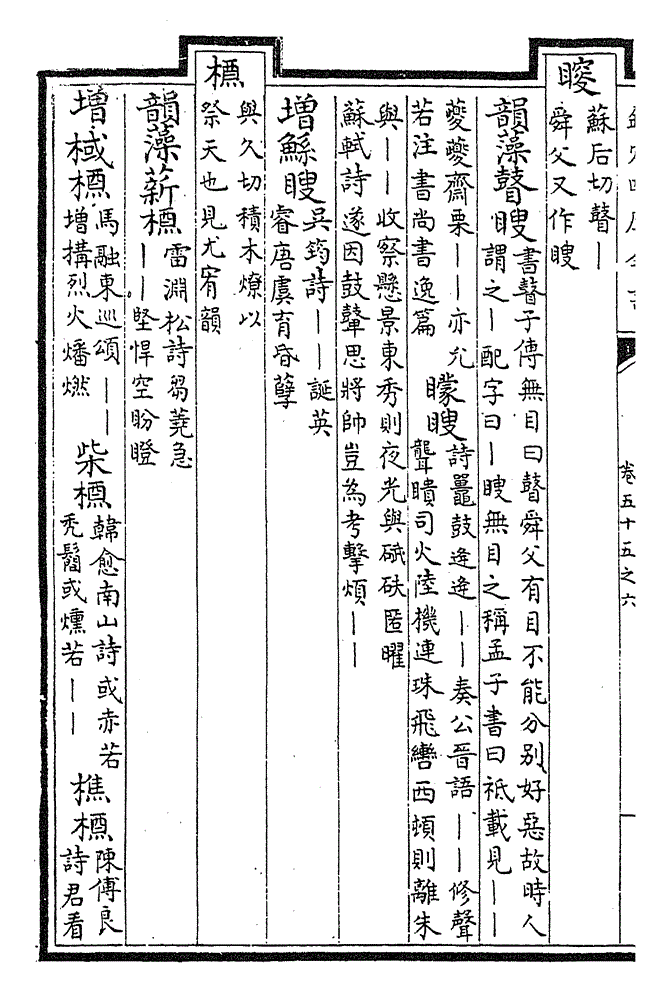 卷五十五之六
瞍
蘇后切瞽丨
舜父又作瞍
韻藻瞽瞍
書瞽子傳無目曰瞽舜父有目不能分别好惡故時人
謂之丨配字曰丨瞍無目之稱孟子書曰祗載見丨丨
夔夔齋栗丨丨亦允
若注書尚書逸篇
矇瞍
詩鼉鼓逄逄丨丨奏公晉語丨丨修聲
聾聵司火陸機連珠飛轡西頓則離朱
與丨丨收察懸景東秀則夜光與碔砆匿曜
蘇軾詩遂因鼓鼙思將帥豈為考擊煩丨丨
增鯀瞍
吳筠詩丨丨誕英
睿唐虞育昏孽
槱
與久切積木燎以
祭天也見尤宥韻
韻藻薪槱
雷淵松詩芻蕘急
丨丨堅悍空盼瞪
增棫槱
馬融東巡頌丨丨
增搆烈火燔燃
柴槱
韓愈南山詩或赤若
禿鬝或燻若丨丨
樵槱
陳傅良
詩君看